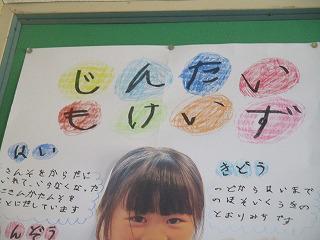 じんたい
もけいず
はい
さんそをからだに
いれて、いらなくなった
にさんかたんそを
そとにだしています
きどう
のどからはいまで
のほそいくうきの
とおりみちです
んぞう